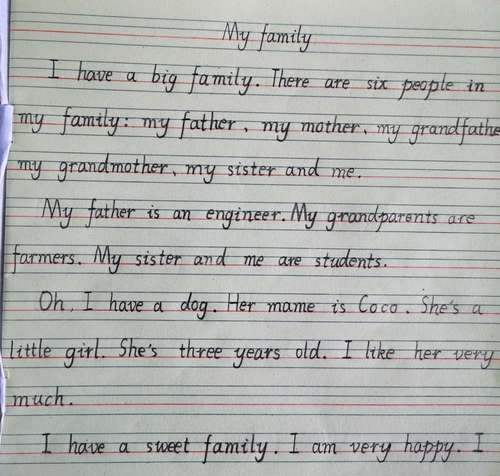 My family
I have a big family. There are six people in
my family: my father、my mother、my grandfathe
my grandmother、my sister and me.
My father is an engineer. My grandparents are
farmers. My sister and me are students.
Oh, I have a dog. Her mame is Coco. She's a
little girl. She's three years old. I like her very
much.
I have a sweet family. I am very happy. I